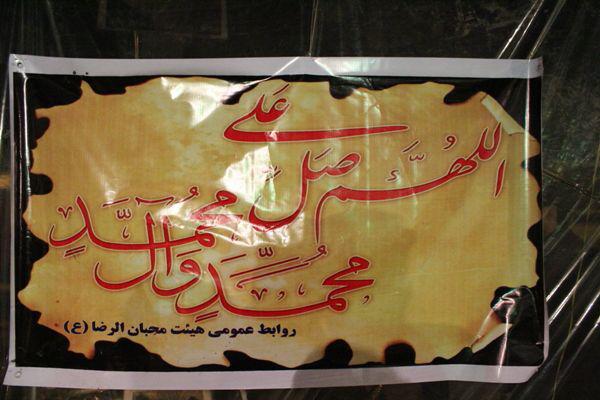 اللهم صل علی
محمد وآل محمد
روابط عمومی هیئت محبان الرضا (ع)